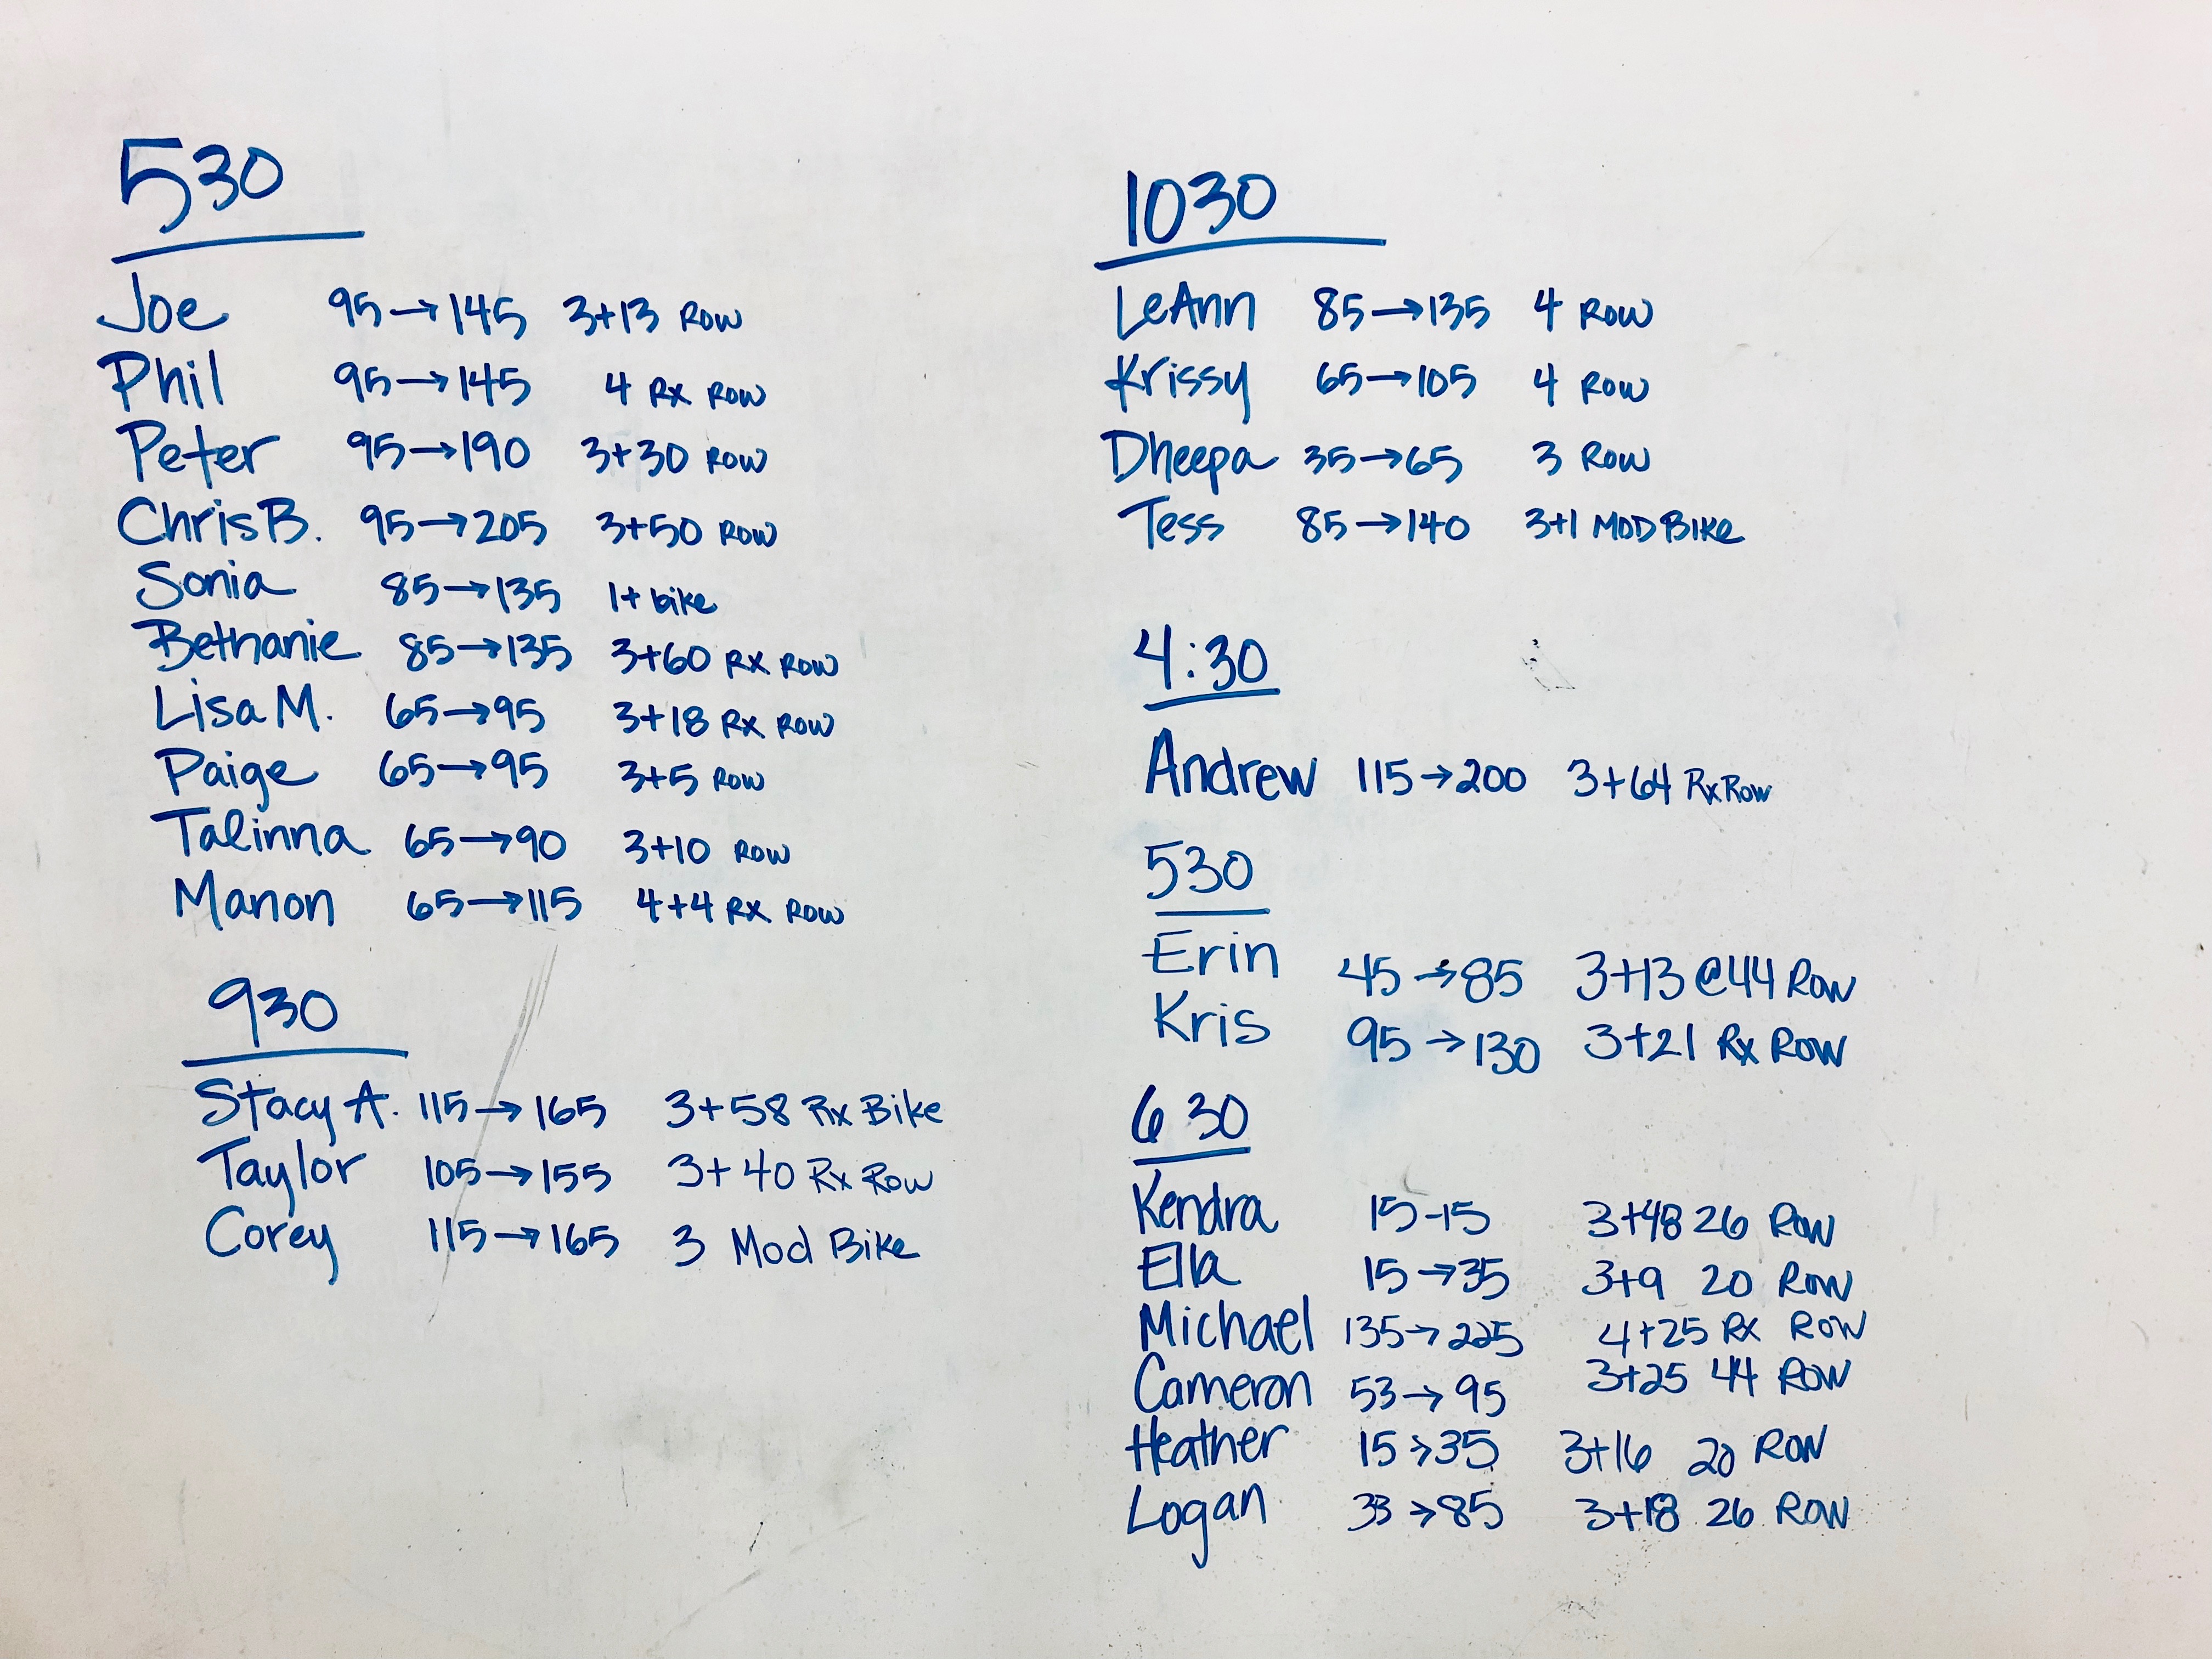 530
Joe 95→145 3+13 Row
Phil 95→145 4 Rx Row
Peter 95→190 3+30 Row
Chris B. 95→205 3+50 Row
Sonia 85→135 1+ bike
Bethanie 85→135 3+60 Rx Row
Lisa M. 65→95 3+18 Rx Row
Paige 65→95 3+5 Row
Talinna 65→90 3+10 Row
Manon 65→115 4+4 Rx Row
930
Stacy A. 115→165 3+58 Rx Bike
Taylor 105→155 3+40 Rx Row
Corey 115→165 3 Mod Bike
1030
LeAnn 85→135 4 Row
Krissy 65→105 4 Row
Dheepa 35→65 3 Row
Tess 85→140 3+1 MOD Bike
4:30
Andrew 115→200 3+64 Rx Row
530
Erin 45→85 3+13 @44 Row
Kris 95→130 3+21 Rx Row
630
Kendra 15-15 3+48 26 Row
Ella 15→35 3+9 20 Row
Michael 135→225 4+25 Rx Row
Cameron 53→95 3+25 44 Row
Heather 15→35 3+16 20 Row
Logan 33→85 3+18 26 Row